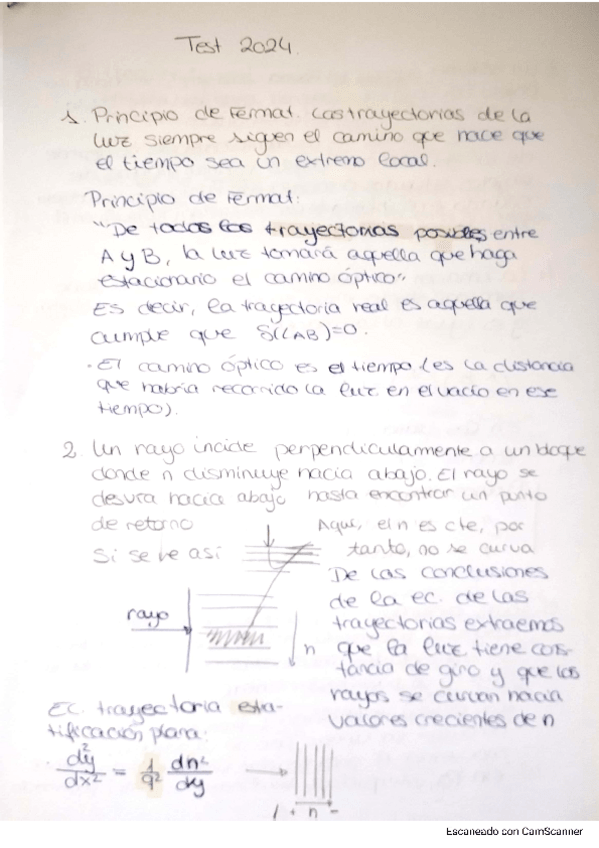 Test 2024.
1. Principio de Fermat. Las trayectorias de la
luz siempre siguen el camino que hace que
el tiempo sea un extremo local.
Principio de Fermat:
"De todas las trayectorias posibles entre
A y B, la luz tomará aquella que haga
estacionario el camino óptico"
Es decir, la trayectoria real es aquella que
cumple que δ(LAB)=0.
· El camino óptico es el tiempo (es la distancia
que habría recorrido la luz en el vacío en ese
tiempo).
2. Un rayo incide perpendicularmente a un bloque
donde n disminuye hacia abajo. El rayo se
desvía hacia abajo hasta encontrar un punto
de retorno
Aquí, el n es cte, por
Si se ve así
tanto, no se curva
De las conclusiones
de la ec. de las
trayectorias extraemos
rayo
n
que la luz tiene cons-
tancia de giro y que los
rayos se curvan hacia
valores crecientes de n
Ec. trayectoria estra-
tificación plana:
d²y/dx² = 1/q² dn²/dy
+ n -
Escaneado con CamScanner